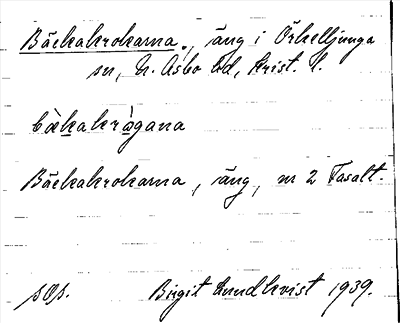 Bäckakrokarna, äng i Örkelljunga
sn, N. Åsbo hd, Krist. l.
bæ̀kakrågana
Bäckakrokarna, äng, nr 2 Fasalt.
sOs. Birgit Lundkvist 1939.